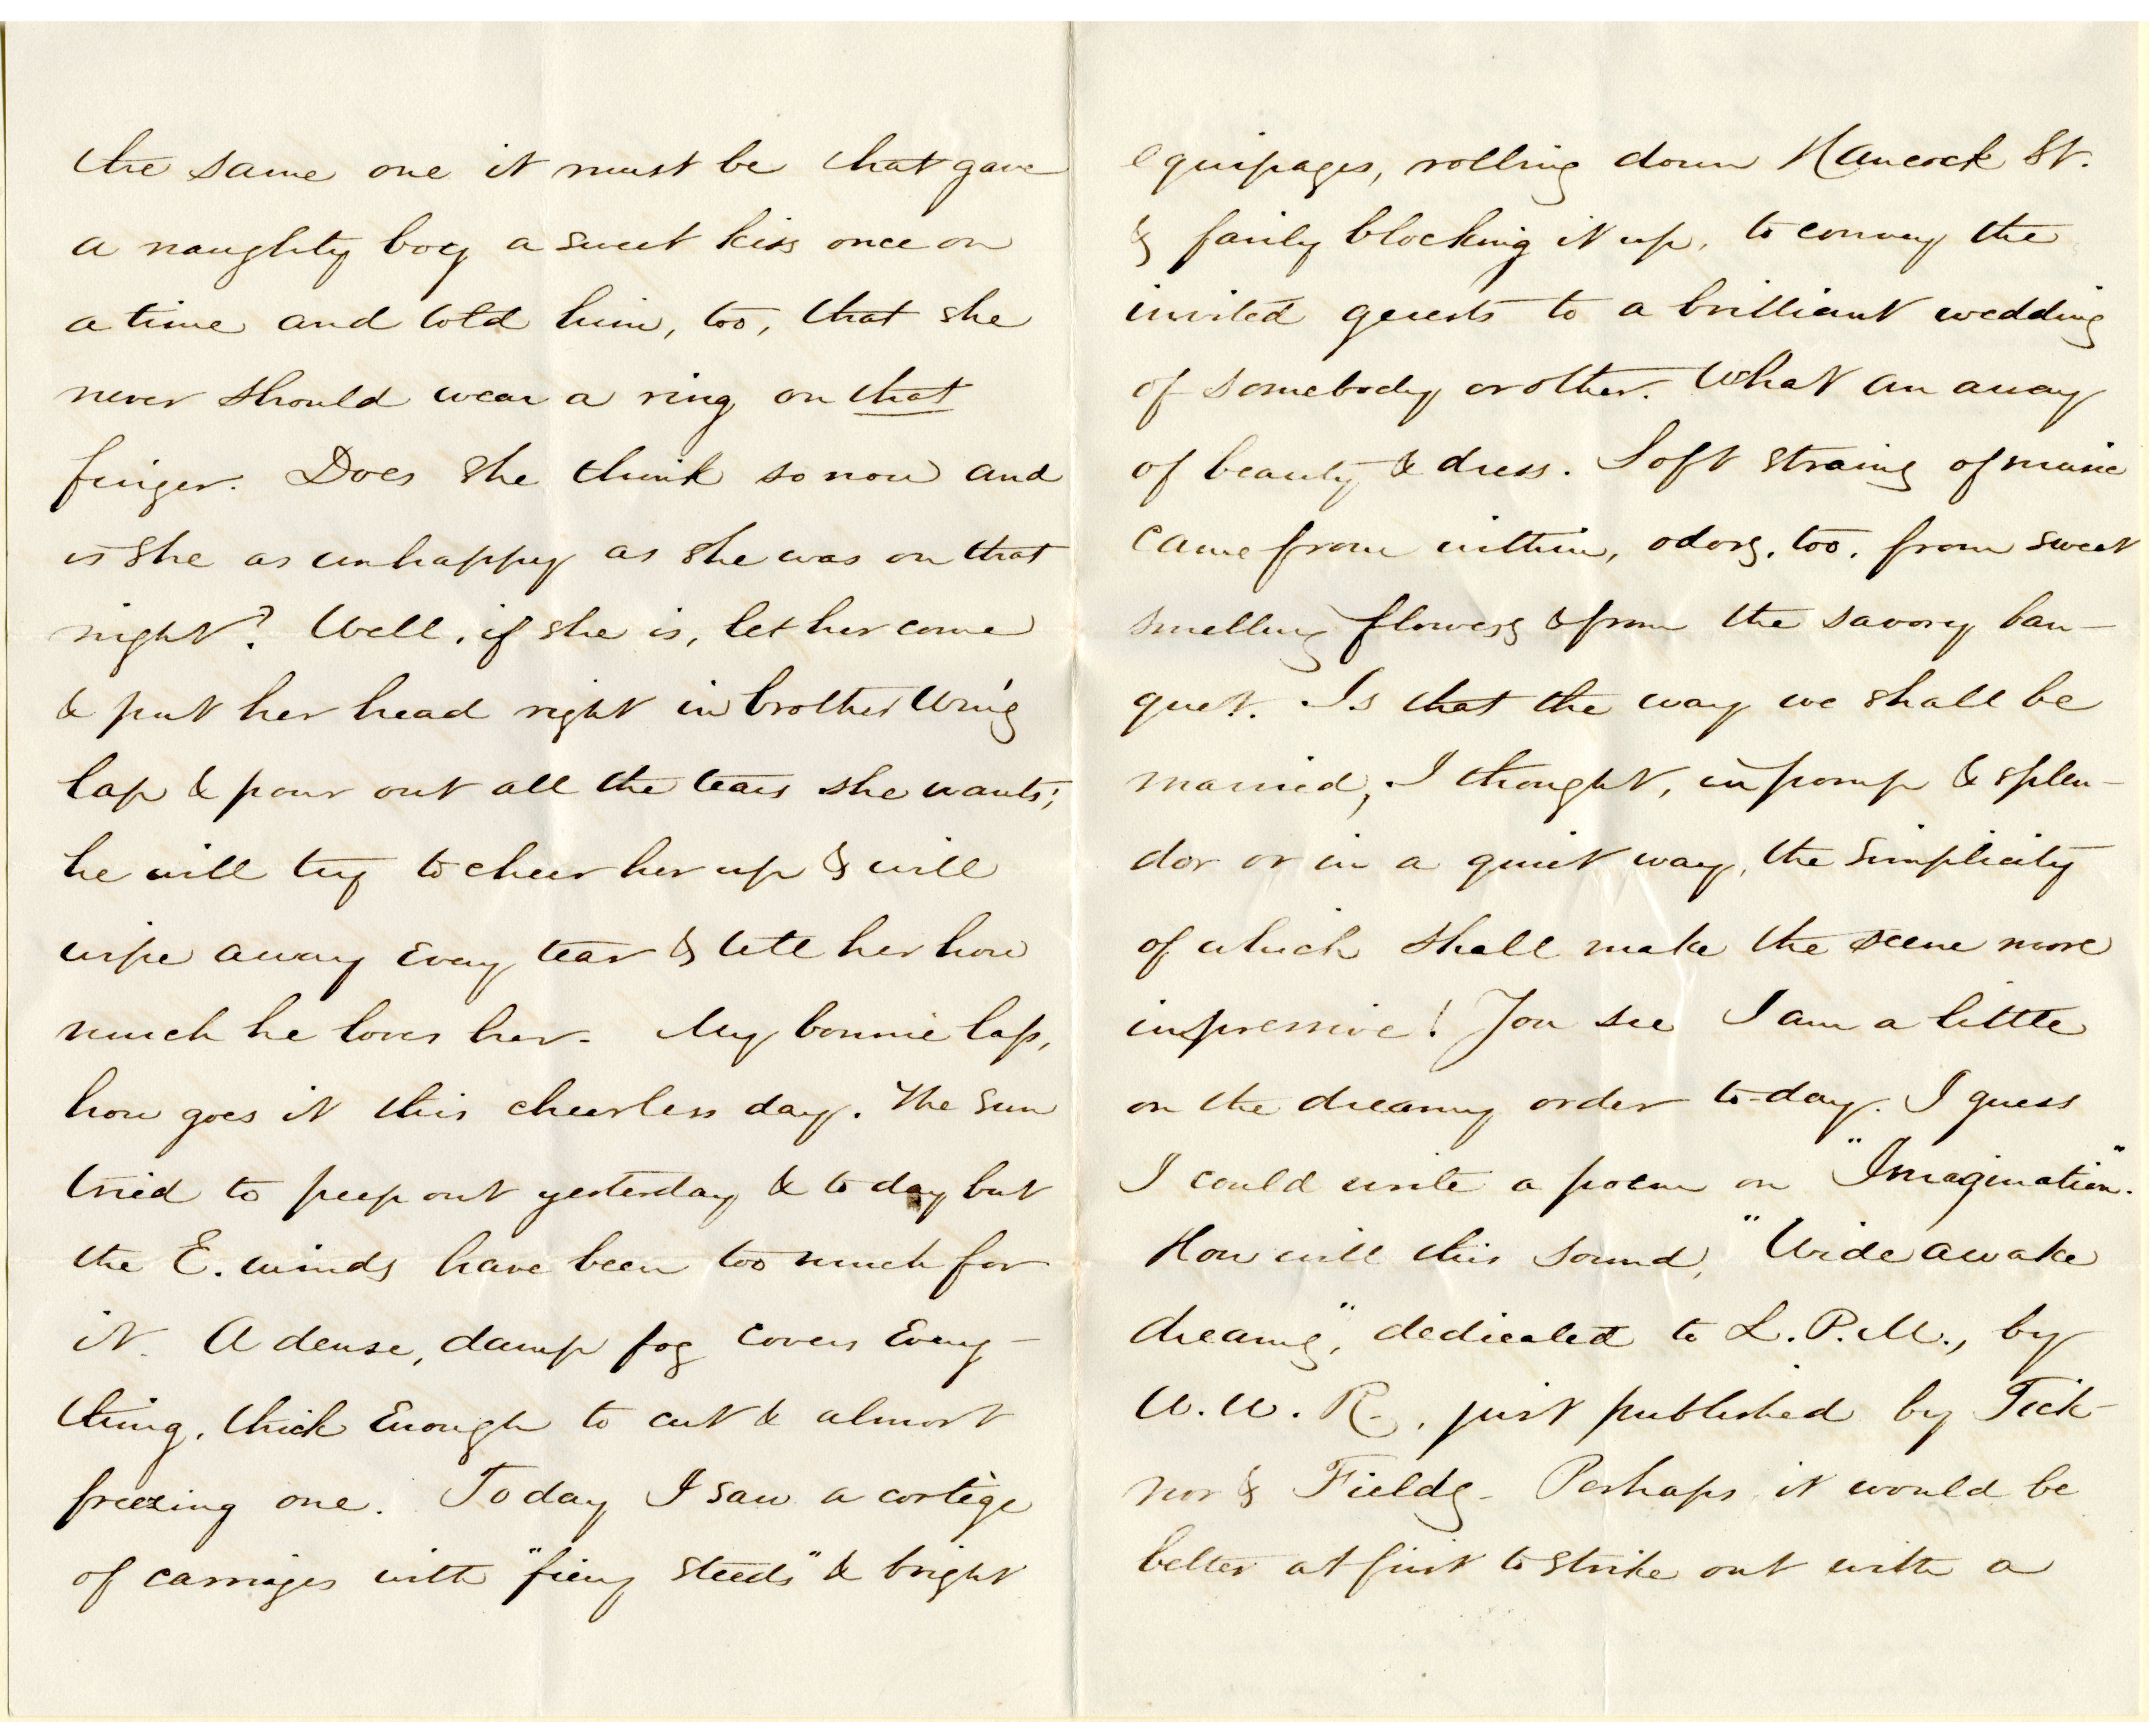 the same one it must be that gave
a naughty boy a sweet kiss once on
a time and told him, too, that she
never should wear a ring on that
finger. Does she think so now and
is she as unhappy as she was on that
night? Well, if she is, let her come
& put her head right in brother Wm's
lap & pour out all the tears she wants;
he will try to cheer her up & will
wipe away every tear & tell her how
much he loves her. My bonnie lass,
how goes it this cheerless day. The sun
tried to peep out yesterday & to day but
the E. winds have been too much for
it. A dense, damp fog covers every-
thing, thick enough to cut & almost
freezing one. To day I saw a cortège
of carriages with "fiery steeds" & bright
equipages, rolling down Hancock St.
& fairly blocking it up, to convey the
invited guests to a brilliant wedding
of somebody or other. What an array
of beauty & dress. Soft strains of music
came from within, odors, too, from sweet
smelling flowers & from the savory ban-
quet. Is that the way we shall be
married, I thought, in pomp & splen-
dor or in a quiet way, the simplicity
of which shall make the scene more
impressive! You see I am a little
on the dreamy order to-day. I guess
I could write a poem on "Imagination".
How will this sound, "Wide awake
dreams", dedicated to L.P.M., by
W.W.R., just published by Tick-
nor & Fields - Perhaps it would be
better at first to strike out with a